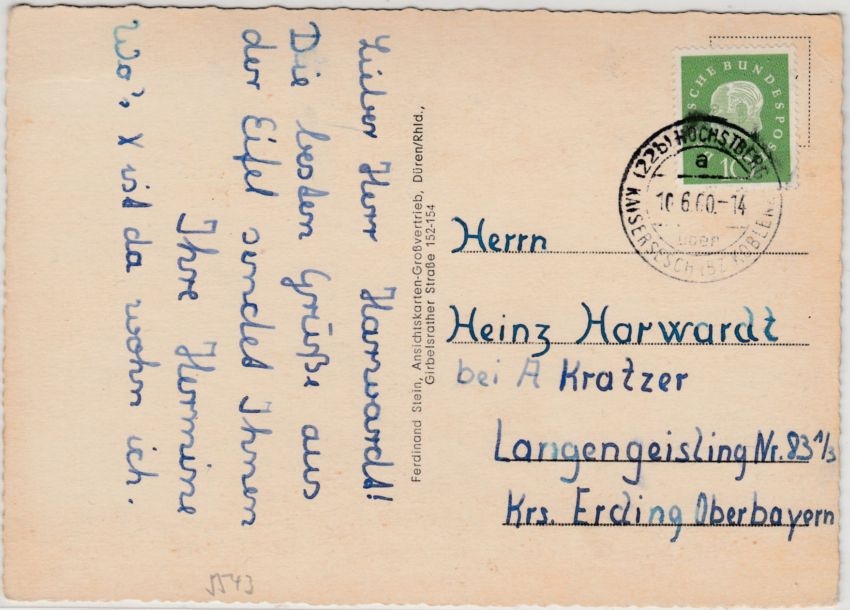 Lieber Herr Harwardt!
Die besten Grüße aus
der Eifel sendet Ihnen
Ihre Hermine
Wo's X ist da wohn ich.
Ferdinand Stein, Ansichtskarten-Großvertrieb, Düren/Rhld.,
Girbelsrather Straße 152-154
SCHE BUNDESPOS
10
(22b) HÖCHSTBERG
a
10.6.60.-14
über
KAISERSESCH (Bz. KOBLENZ
Herrn
Heinz Harwardt
bei A Kratzer
Langengeisling Nr. 83 1/3
Krs. Erding Oberbayern
5543